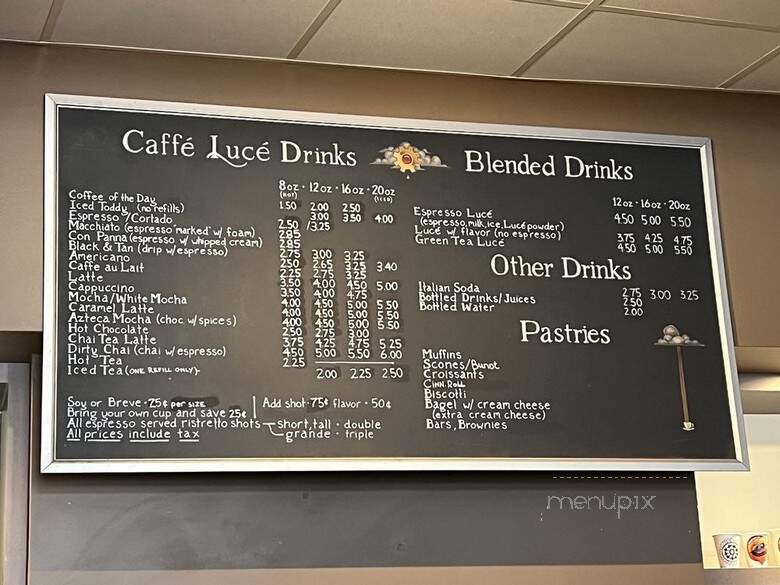 Caffé Lucé Drinks
8oz · 12oz · 16oz · 20oz
(HOT) (ICED)
Coffee of the Day 1.50 2.00 2.50
Iced Toddy (no refills) 3.00 3.50 4.00
Espresso/Cortado 2.50/3.25
Macchiato (espresso "marked" w/ foam) 2.85
Con Panna (espresso w/ whipped cream) 2.95
Black & Tan (drip w/espresso) 2.85
Americano 2.75 3.00 3.25
Caffe au Lait 2.50 2.65 3.25 3.40
Latte
Cappuccino
Mocha/White Mocha
Caramel Latte
Azteca Mocha (choc w/spices)
Hot Chocolate 2.50 2.75 3.00
Chai Tea Latte 3.75 4.25 4.75 5.25
Dirty Chai (chai w/espresso) 4.50 5.00 5.50 6.00
Hot Tea 2.25
Iced Tea (ONE REFILL ONLY) 2.00 2.25 2.50
Soy or Breve · 25¢ per size
Bring your own cup and save 25¢
Add shot · 75¢ flavor · 50¢
All espresso served ristretto shots short, tall · double
grande · triple
All prices include tax
Blended Drinks
12oz · 16oz · 20oz
Espresso Lucé 4.50 5.00 5.50
(espresso, milk, ice, Lucé powder)
Lucé w/ flavor (no espresso) 3.75 4.25 4.75
Green Tea Lucé 4.50 5.00 5.50
Other Drinks
Italian Soda 2.75 3.00 3.25
Bottled Drinks/Juices 2.50
Bottled Water 2.00
Pastries
Muffins
Scones/Bundt
Croissants
Cinn. Roll
Biscotti
Bagel w/ cream cheese
(extra cream cheese)
Bars, Brownies
menupix